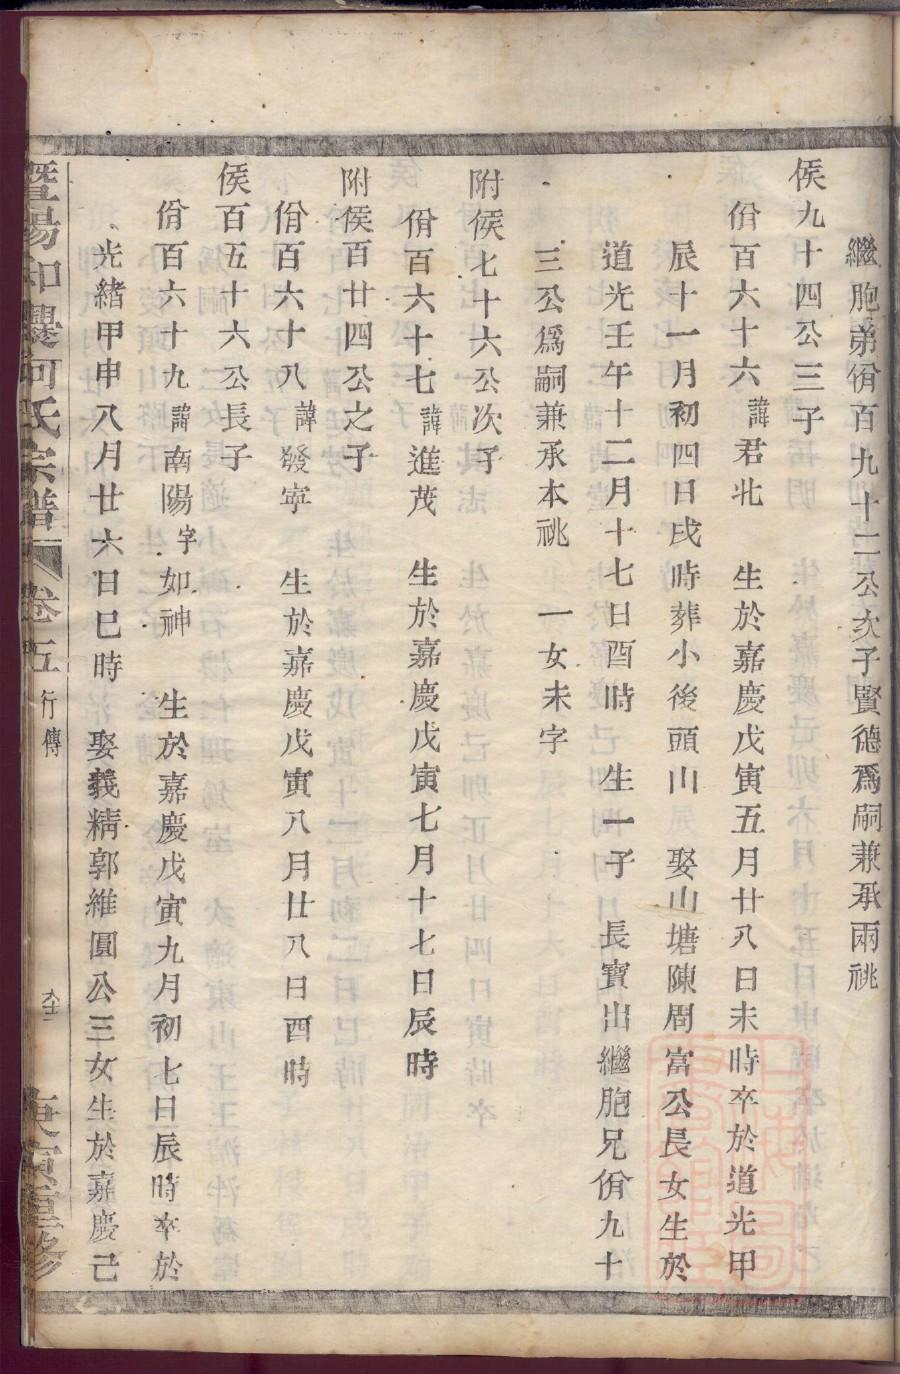 繼胞弟佾百九十二公次子賢德爲嗣兼承兩祧
侯九十四公三子
佾百六十六諱君北　生於嘉慶戊寅五月廿八日未時卒於道光甲
辰十一月初四日戌時葬小後頭山　娶山塘陳周富公長女生於
道光壬午十二月十七日酉時　生一子　長寶出繼胞兄佾九十
三公爲嗣兼承本祧　一女未字
附侯七十六公次子
佾百六十七諱進茂　生於嘉慶戊寅七月十七日辰時
附侯百廿四公之子
佾百六十八諱發寧　生於嘉慶戊寅八月廿八日酉時
侯百五十六公長子
佾百六十九諱南陽字如神　生於嘉慶戊寅九月初七日辰時卒於
光緒甲申八月廿六日巳時　娶義精郭維圓公三女生於嘉慶己
暨陽和㶚何氏宗譜　卷五　行傳　庚寅重修